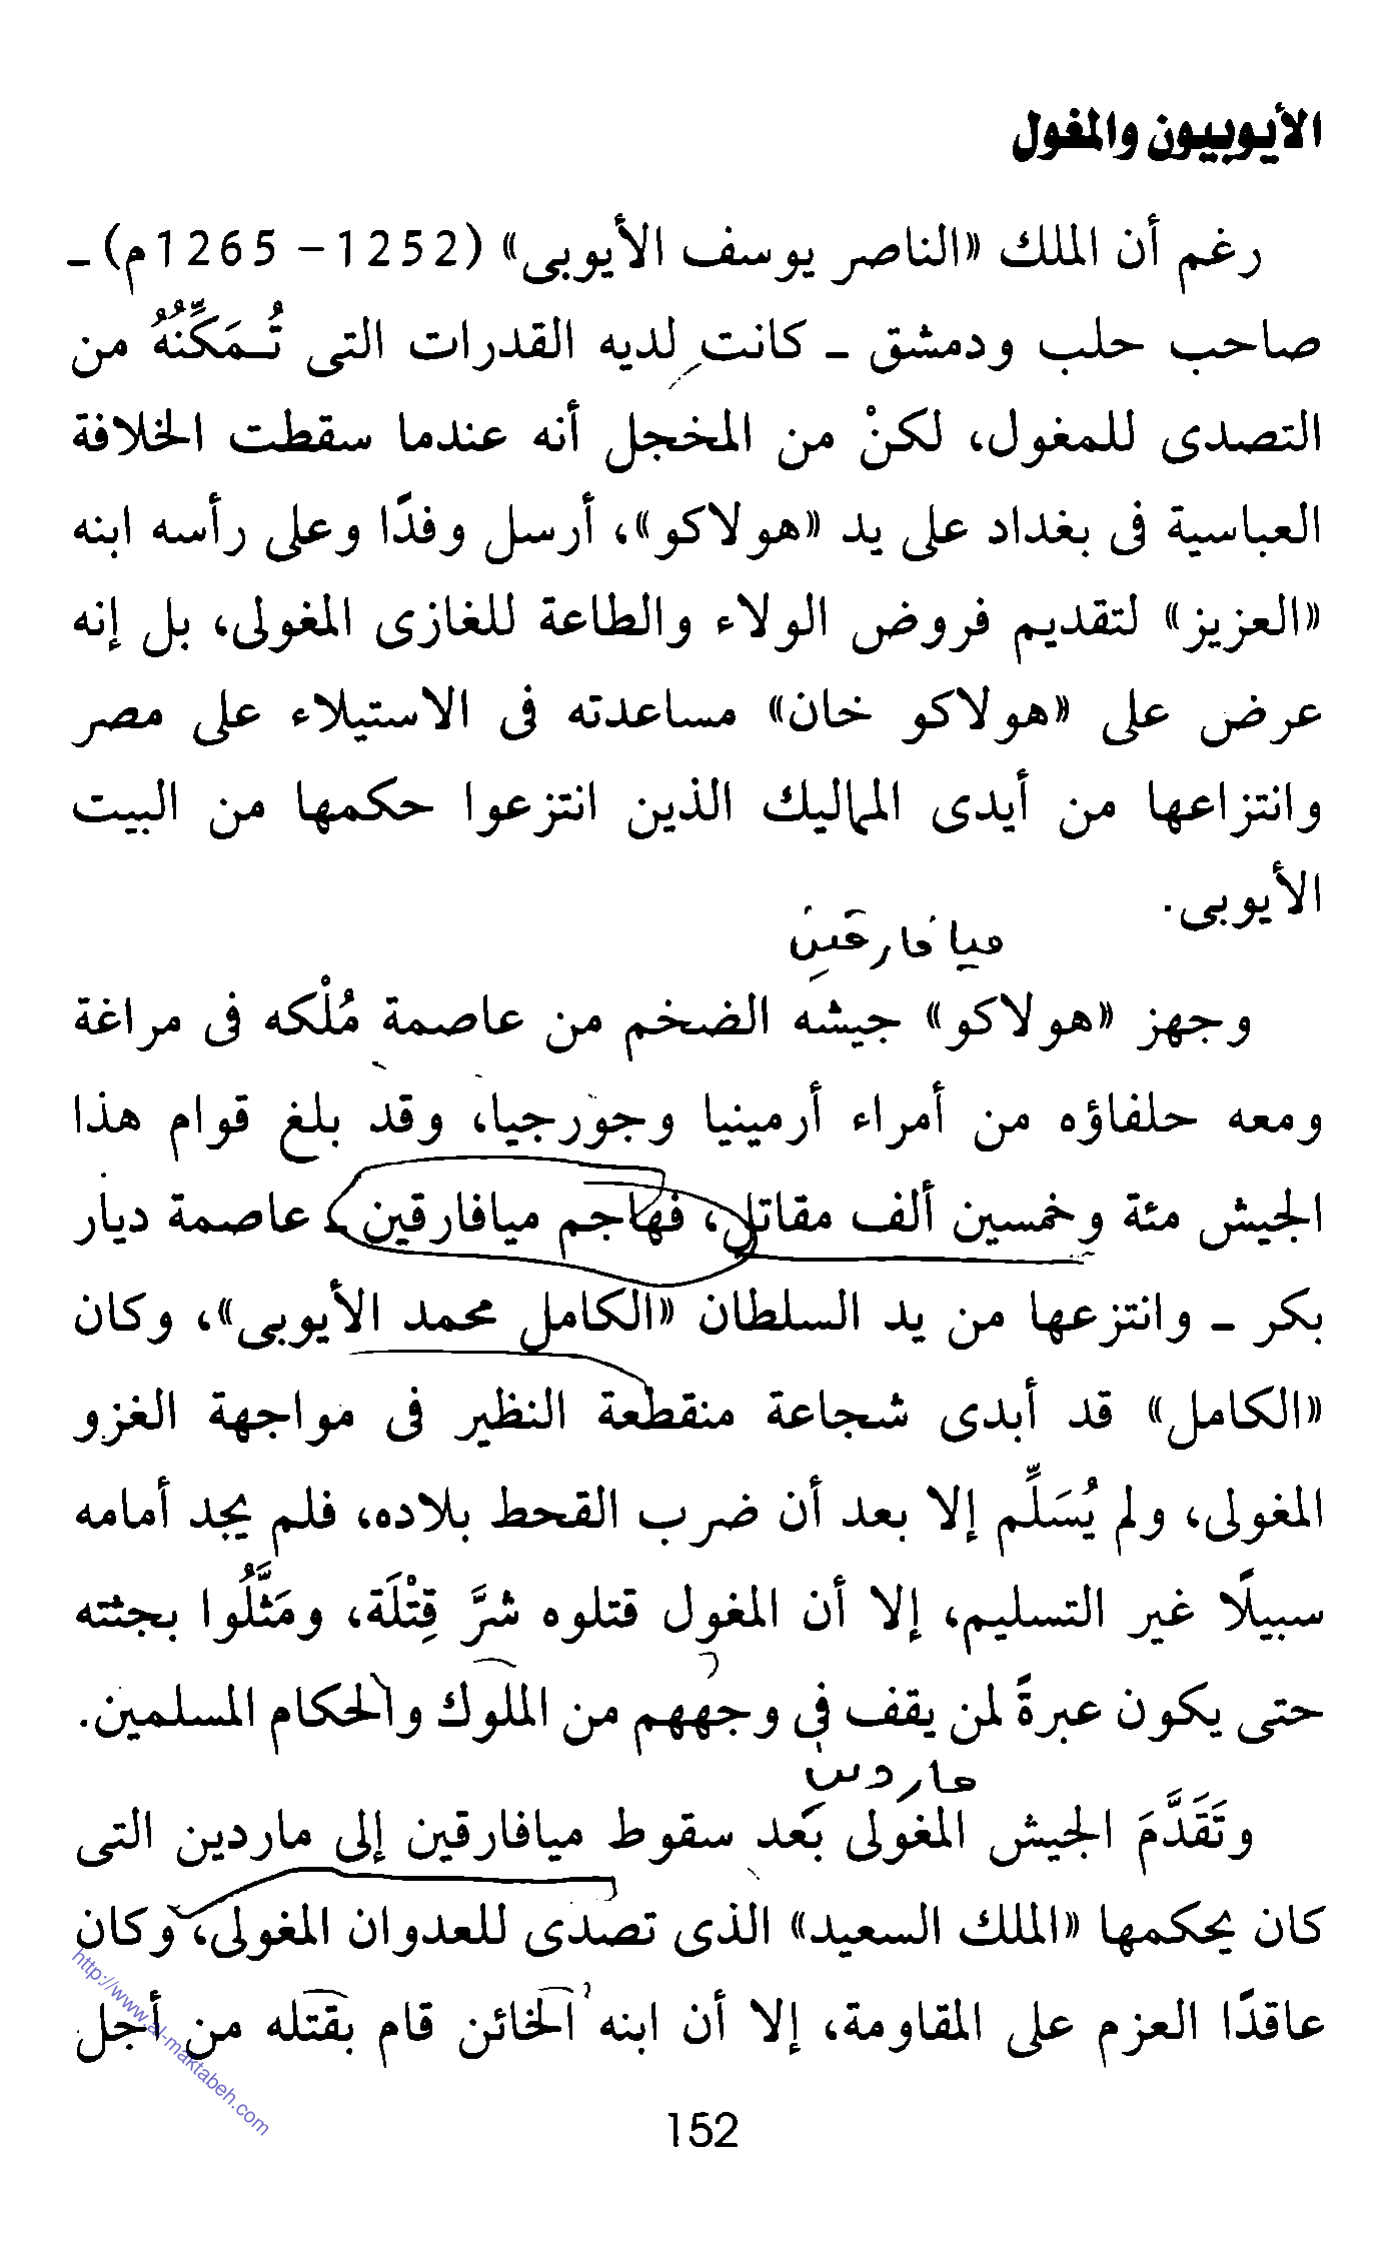 الأيوبيون والمغول
رغم أن الملك «الناصر يوسف الأيوبى» (1252 – 1265م) ـ
صاحب حلب ودمشق ـ كانت لديه القدرات التى تُـمَكِّنُهُ من
التصدى للمغول، لكنْ من المخجل أنه عندما سقطت الخلافة
العباسية فى بغداد على يد «هولاكو»، أرسل وفدًا وعلى رأسه ابنه
«العزيز» لتقديم فروض الولاء والطاعة للغازى المغولى، بل إنه
عرض على «هولاكو خان» مساعدته فى الاستيلاء على مصر
وانتزاعها من أيدى المماليك الذين انتزعوا حكمها من البيت
الأيوبى.
ميافارقين
وجهز «هولاكو» جيشه الضخم من عاصمة مُلْكه فى مراغة
ومعه حلفاؤه من أمراء أرمينيا وجورجيا، وقد بلغ قوام هذا
الجيش مئة وخمسين ألف مقاتل، فهاجم ميافارقين ـ عاصمة ديار
بكر ـ وانتزعها من يد السلطان «الكامل محمد الأيوبى»، وكان
«الكامل» قد أبدى شجاعة منقطعة النظير فى مواجهة الغزو
المغولى، ولم يُسَلِّم إلا بعد أن ضرب القحط بلاده، فلم يجد أمامه
سبيلًا غير التسليم، إلا أن المغول قتلوه شرَّ قِتْلَة، ومَثَّلُوا بجثته
حتى يكون عبرةً لمن يقف فى وجههم من الملوك والحكام المسلمين.
ماردين
وتَقَدَّمَ الجيش المغولى بعد سقوط ميافارقين إلى ماردين التى
كان يحكمها «الملك السعيد» الذى تصدى للعدوان المغولى، وكان
عاقدًا العزم على المقاومة، إلا أن ابنه الخائن قام بقتله من أجل
http://www.al-maktabeh.com
152